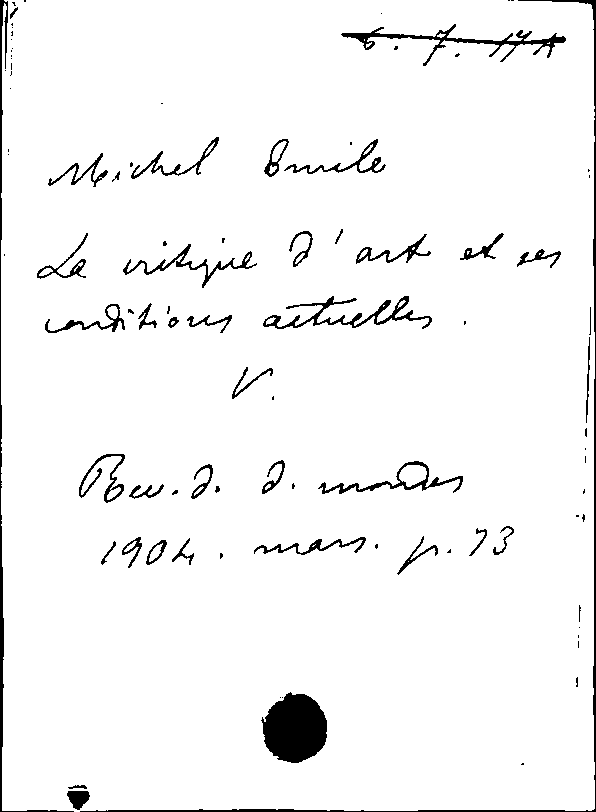 6. 7. 17
Michel Emile
La critique d'art et ses
conditions actuelles.
V.
Rev. d. d. mondes
1904. mars. p. 73